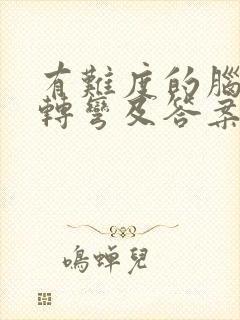 有難度的腦
轉彎及答案
鳴蟬兒